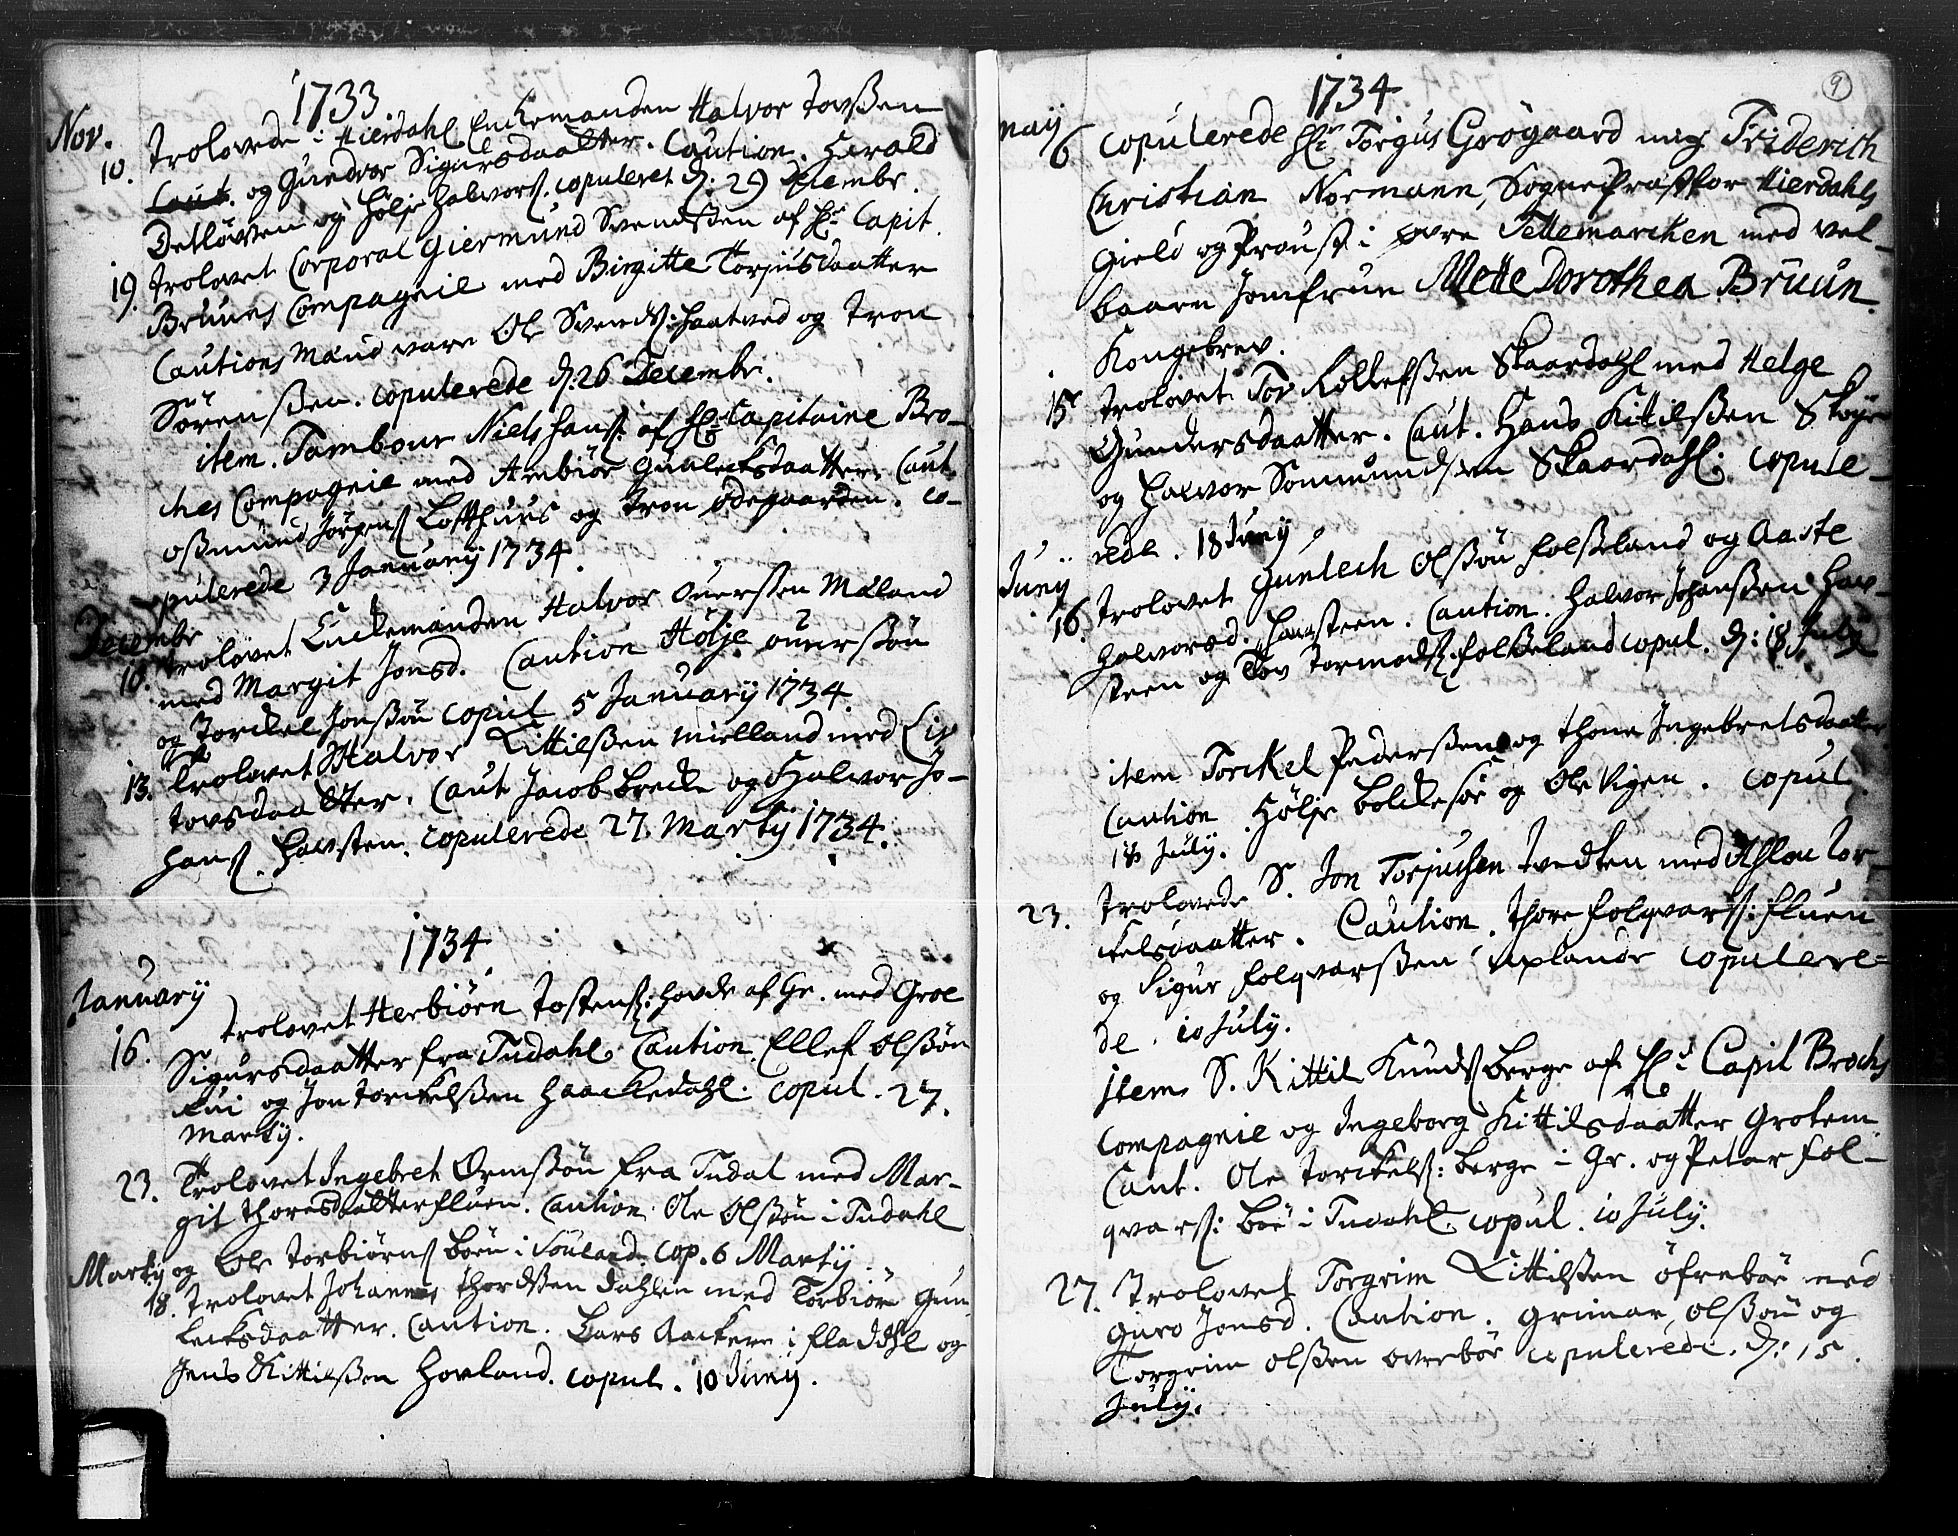 1733
Nov.
10. Trolovede i Hierdahl Enckemanden Halvor Tovßen
Caut. og Gundvor Sigursdaatter. Caution. Harald
Detløvsen og Hølje Halvors. copuleret d. 29 Decembr.
19. Trolovet Corporal Giermund Svendsen af Hr Capit.
Bruuns Compagnie med Birgitte Torjusdaatter
Cautions Mænd vare Ole Svends: Haatved og Tron
Sörenßen. copulerede d. 26 Decembr.
item. Tambour Niels Hans: af Hr Capitaine Bro-
ches Compagnie med Anbiör Gunlecksdaatter. Caut.
Oßmund Jörgens Lofthuus og Tron Ödegaarden. co-
pulerede 3 January 1734.
Decembr
10. Trolovet Enckemanden Halvor Ouerßen Mæland
med Margit Jonsd. Caution Hölje ouerßön
og Torckel Jonßön copul 5 January 1734.
13. Trolovet Halvor Kittilßen Mielland med Liv
Tovsdaatter. Caut Jacob Brecke og Halvor Jo-
hans. Havsten. copulerede 27. Martij 1734.
1734
January
16. Trolovet Herbiörn Jostens: Hovde af Gr. med Groe
Sigursdaatter fra Tudahl. Caution. Ellef Olßön
Lui og Jon Torckelßen Haackedahl. copul. 27.
Martij.
23. Trolovet Ingebret Ormßön fra Tudal med Mar-
git Thoresdaatter Fluen. Caution. Ole Olßön i Tudahl
og Ole Torbiörns Böen i Souland. Cop. 6 Martij.
Martij
18. Trolovet Johannes Thordßen Dahlen med Torbiör Gun
lecksdaatter. Caution. Lars Aackere i Fladdahl og
Jens Kittilßen Hovland. copul. 10 Junij.
9
1734.
Maij
6 copulerede Hr Torgus Grögaard mig Friderich
Christian Normann, Sogne Præst for Hierdahls
Gield og Proust i øvre Tellemarcken med vel-
baarn Jomfrue Mette Dorothea Bruun.
Kongebrev.
15 Trolovet Tov Rollefßen Skaardahl med Helge
Gundersdaatter. Caut. Hans Kittilßen Skoje
og Halvor Sommundsen Skaardahl: copule-
rede. 18 Junij
Junij
16. Trolovet Gunlech Olßön Folßland og Aaste
Halvorsd. Havsteen. Caution. Halvor Johanßen Hav-
steen og Tov Tormods. Folßeland copul. d: 18 July
item Torckel Pederßen og Thone Ingebretsdaatter
Caution Hölje Bolckesöe og Ole Vigen. copul.
18 July.
23. Trolovede S. Jon Torjusßen Tvedten med Aslou Tor-
kelsdaatter. Caution. Thore Folqvars: Fluen
og Sigur Folqvarßen Uplande copulere=
de. 10 July.
Item S. Kittil Knuds Berge af Hr Capit Brochs
Compagnie og Ingeborg Kittilsdaatter Grotem
Caut. Ole Torckels: Berge i Gr. og Petar Fol-
qvars: Böe i Tudahl. copul. 10 July.
27. Trolovet Torgrim Kittilßen Öfreböe med
Guro Jonsd. Caution. Grimar Olßön og
Torgrim Olßen overböe copulerede. d: 15.
July.